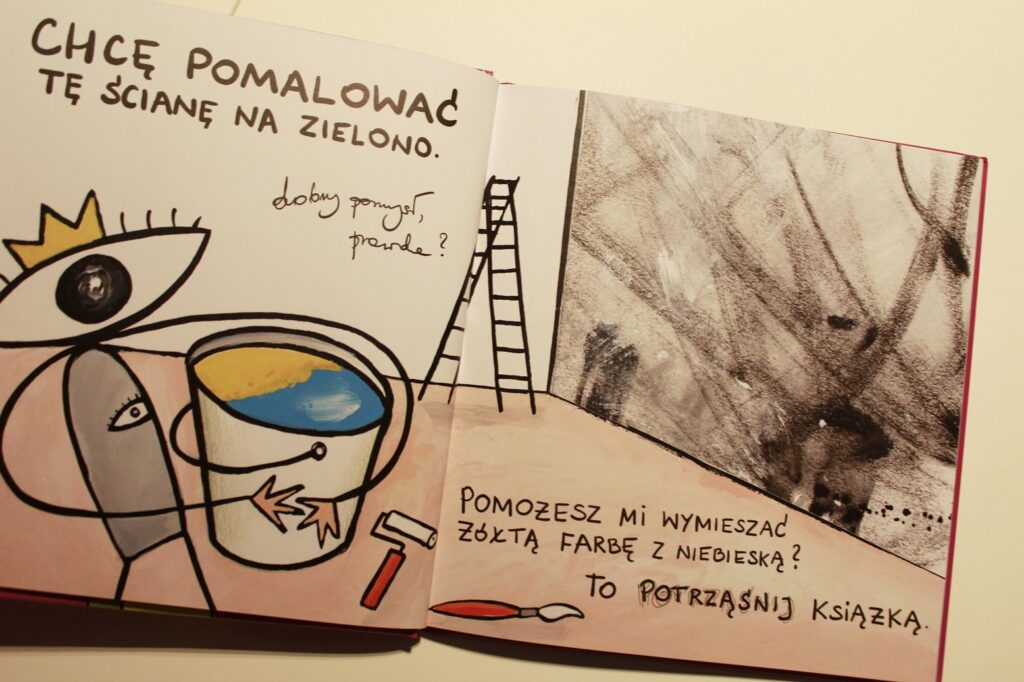 CHCĘ POMALOWAĆ
TĘ ŚCIANĘ NA ZIELONO.
dobry pomysł,
prawda?
POMOŻESZ MI WYMIESZAĆ
ŻÓŁTĄ FARBĘ Z NIEBIESKĄ?
TO POTRZĄŚNIJ KSIĄŻKĄ.